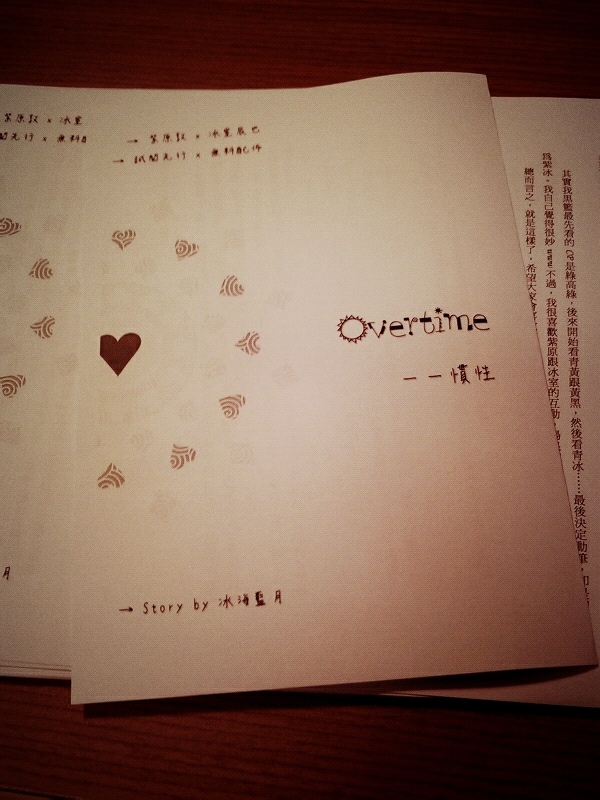 紫原敦 x 冰室
閱先行 x 無料
→ 紫原敦 x 冰室辰也
→ 試閱先行 x 無料配件
Overtime
——慣性
→ Story by 冰海藍月
月
其實我黑籃最先看的CP是綠高綠，後來開始看青黃跟黃黑，然後看青冰……最後決定動筆，
為紫冰，我自己覺得很妙www不過，我很喜歡紫原跟冰室的互動，
總而言之，就是這樣了，希望大家會